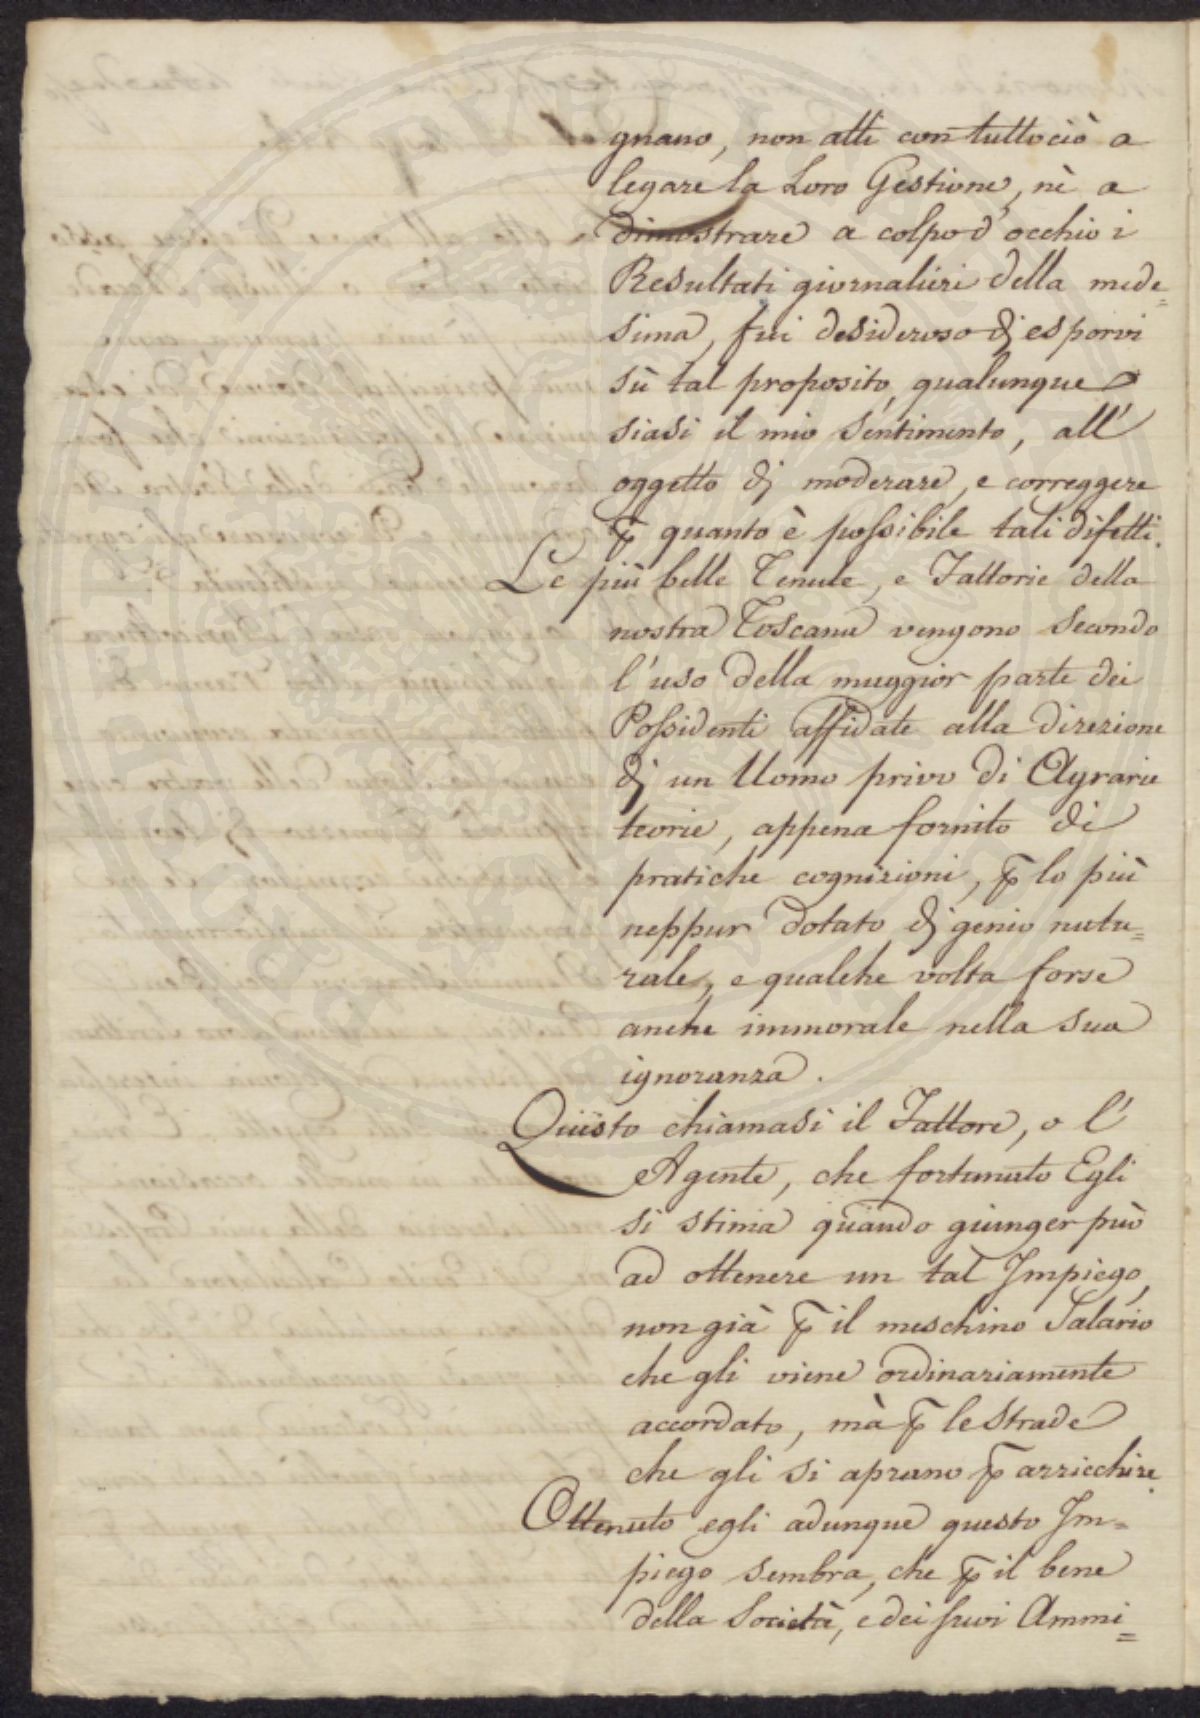 gnano, non atti con tuttociò a
legare la Loro Gestione, nè a
dimostrare a colpo d'occhio i
Resultati giornalieri della mede=
sima, fui desideroso di esporvi
sù tal proposito, qualunque
siasi il mio sentimento, all'
oggetto di moderare, e correggere
ꝑ quanto è possibile tali difetti.
Le più belle Tenute, e Fattorie della
nostra Toscana vengono secondo
l'uso della maggior parte dei
Possidenti affidate alla direzione
di un Uomo privo di Agrarie
teorie, appena fornito di
pratiche cognizioni, ꝑ lo più
neppur dotato di genio natu=
rale, e qualche volta forse
anche immorale nella sua
ignoranza.
Questo chiamasi il Fattore, o l'
Agente, che fortunato Egli
si stima quando giunger può
ad ottenere un tal Impiego,
non già ꝑ il meschino Salario
che gli viene ordinariamente
accordato, mà ꝑ le strade
che gli si aprano ꝑ arricchire.
Ottenuto egli adunque questo Im=
piego sembra, che ꝑ il bene
della Società, e dei suoi Ammi=